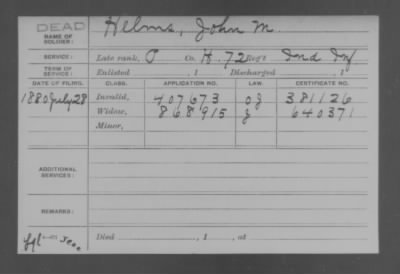 DEAD
NAME OF SOLDIER: Helms, John M.
SERVICE: Late rank, P Co. H. 72 Reg't Ind Inf
TERM OF SERVICE: Enlisted , 1 Discharged , 1
DATE OF FILING. CLASS. APPLICATION NO. LAW. CERTIFICATE NO.
1880 July 28 Invalid, 407673 381126
Widow, 868915 640371
Minor,
ADDITIONAL SERVICES:
REMARKS:
Died , 1 , at